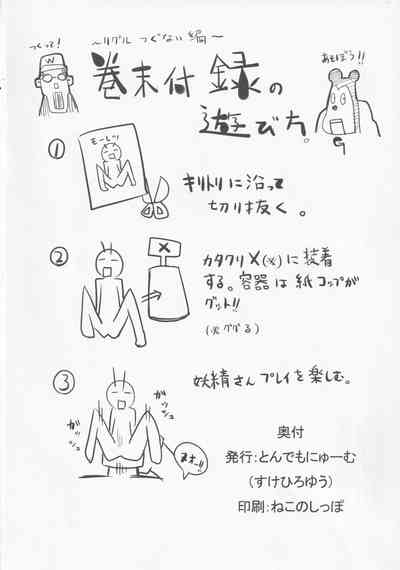 つくって!
〜リグル つぐない編〜
あそぼう!!
W
巻末付録の
遊び方。
①
モーレツ
キリトリに沿って
切り抜く。
②
X
カタクリX(※)に装着
する。容器は紙コップが
グット!!
(※ググる)
③
妖精さんプレイを楽しむ。
ガッシュ
ガッシュ
ヌオー!!
奥付
発行:とんでもにゅーむ
(すけひろゆう)
印刷:ねこのしっぽ